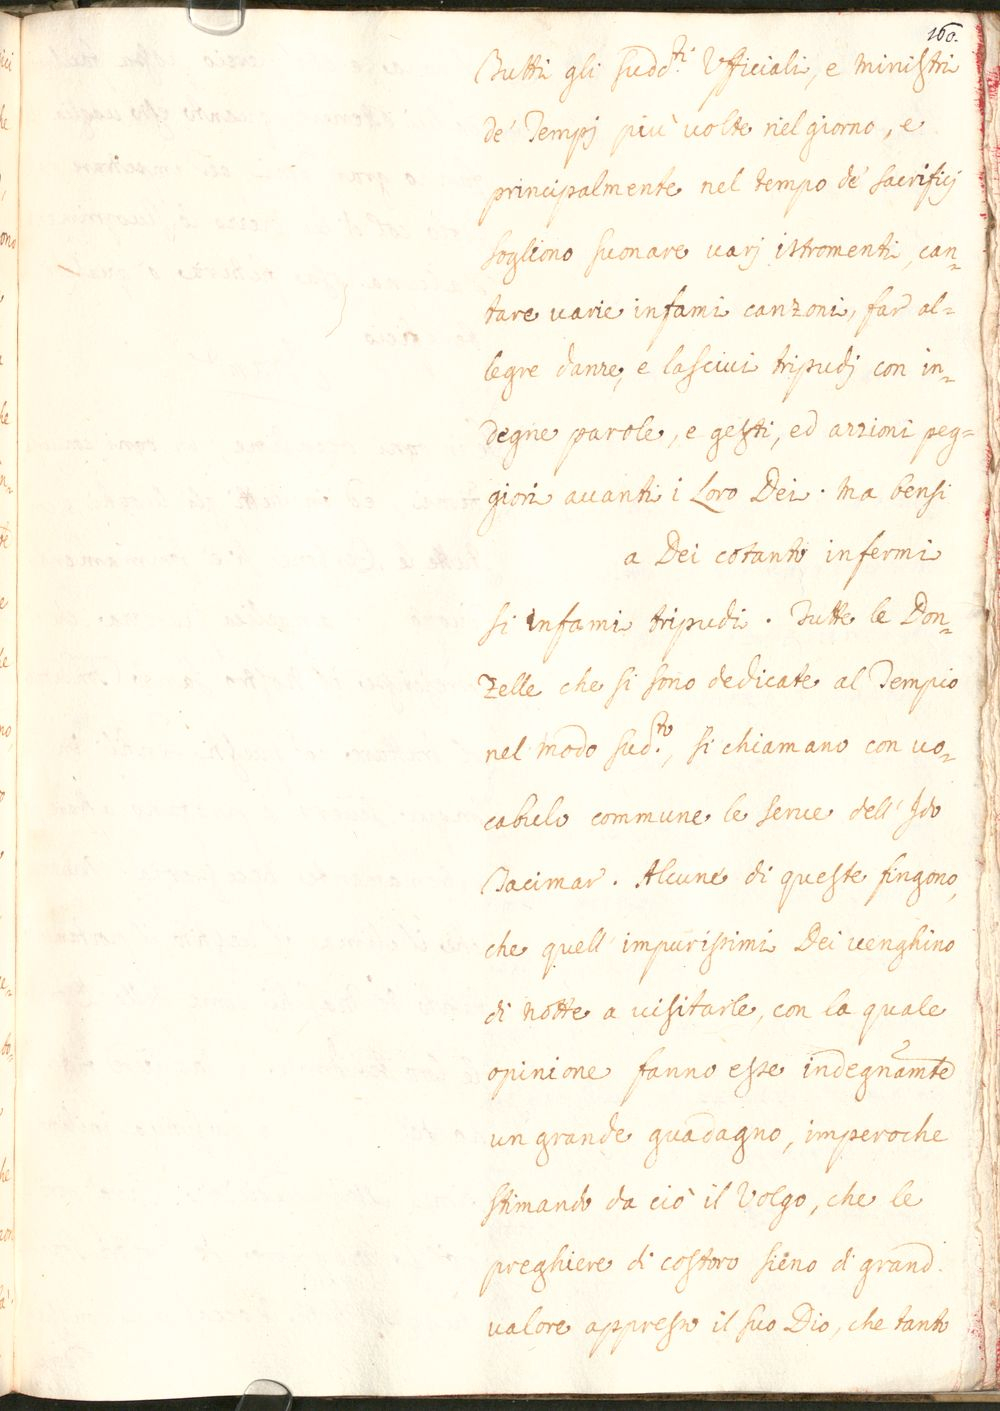 160.
Tutti gli sudd.ti Ufficiali, e Ministri
de' Tempj più volte nel giorno, e
principalmente nel tempo de' sacrificj
sogliono suonare varj istromenti, can-
tare varie infami canzoni, far al-
legre danze, e lascivi tripudj con in-
degne parole, e gesti, ed azzioni peg-
giori avanti i Loro Dei. Ma bensi
a Dei cotanto infermi
si infami tripudi. Tutte le Don-
zelle che si sono dedicate al Tempio
nel modo sud.to, si chiamano con vo-
cabulo commune le serve dell' Ido
Tacimar. Alcune di queste fingono,
che quell' impurissimi Dei venghino
di notte a visitarle, con la quale
opinione fanno esse indegnamte
un grande guadagno, imperoche
stimando da ciò il Volgo, che le
preghiere di costoro sieno di grand.
valore appresso il suo Dio, che tanto